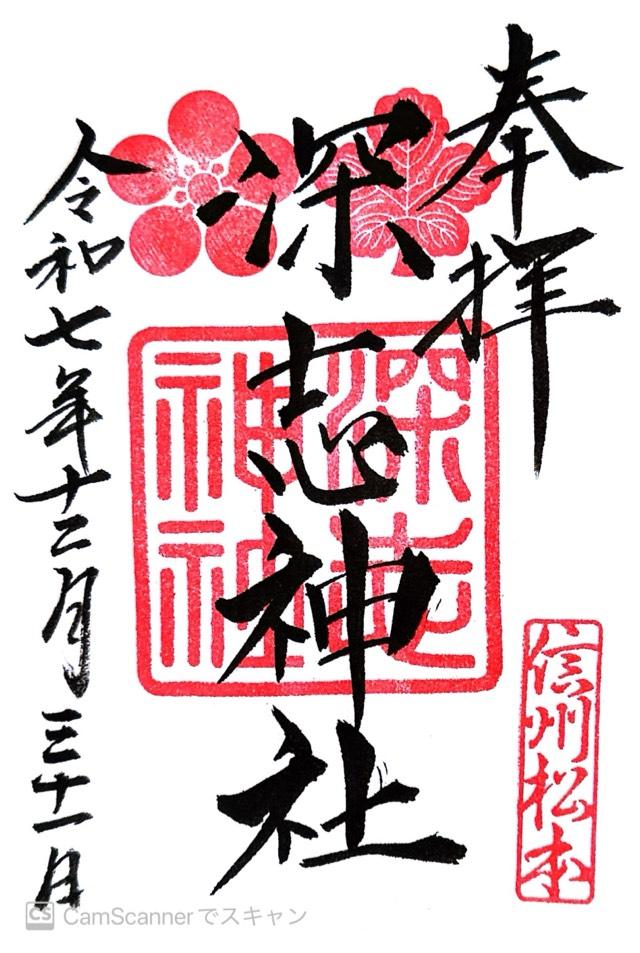 奉拝
深志神社
深志神社
信州松本
令和七年十二月三十一日
CamScannerでスキャン